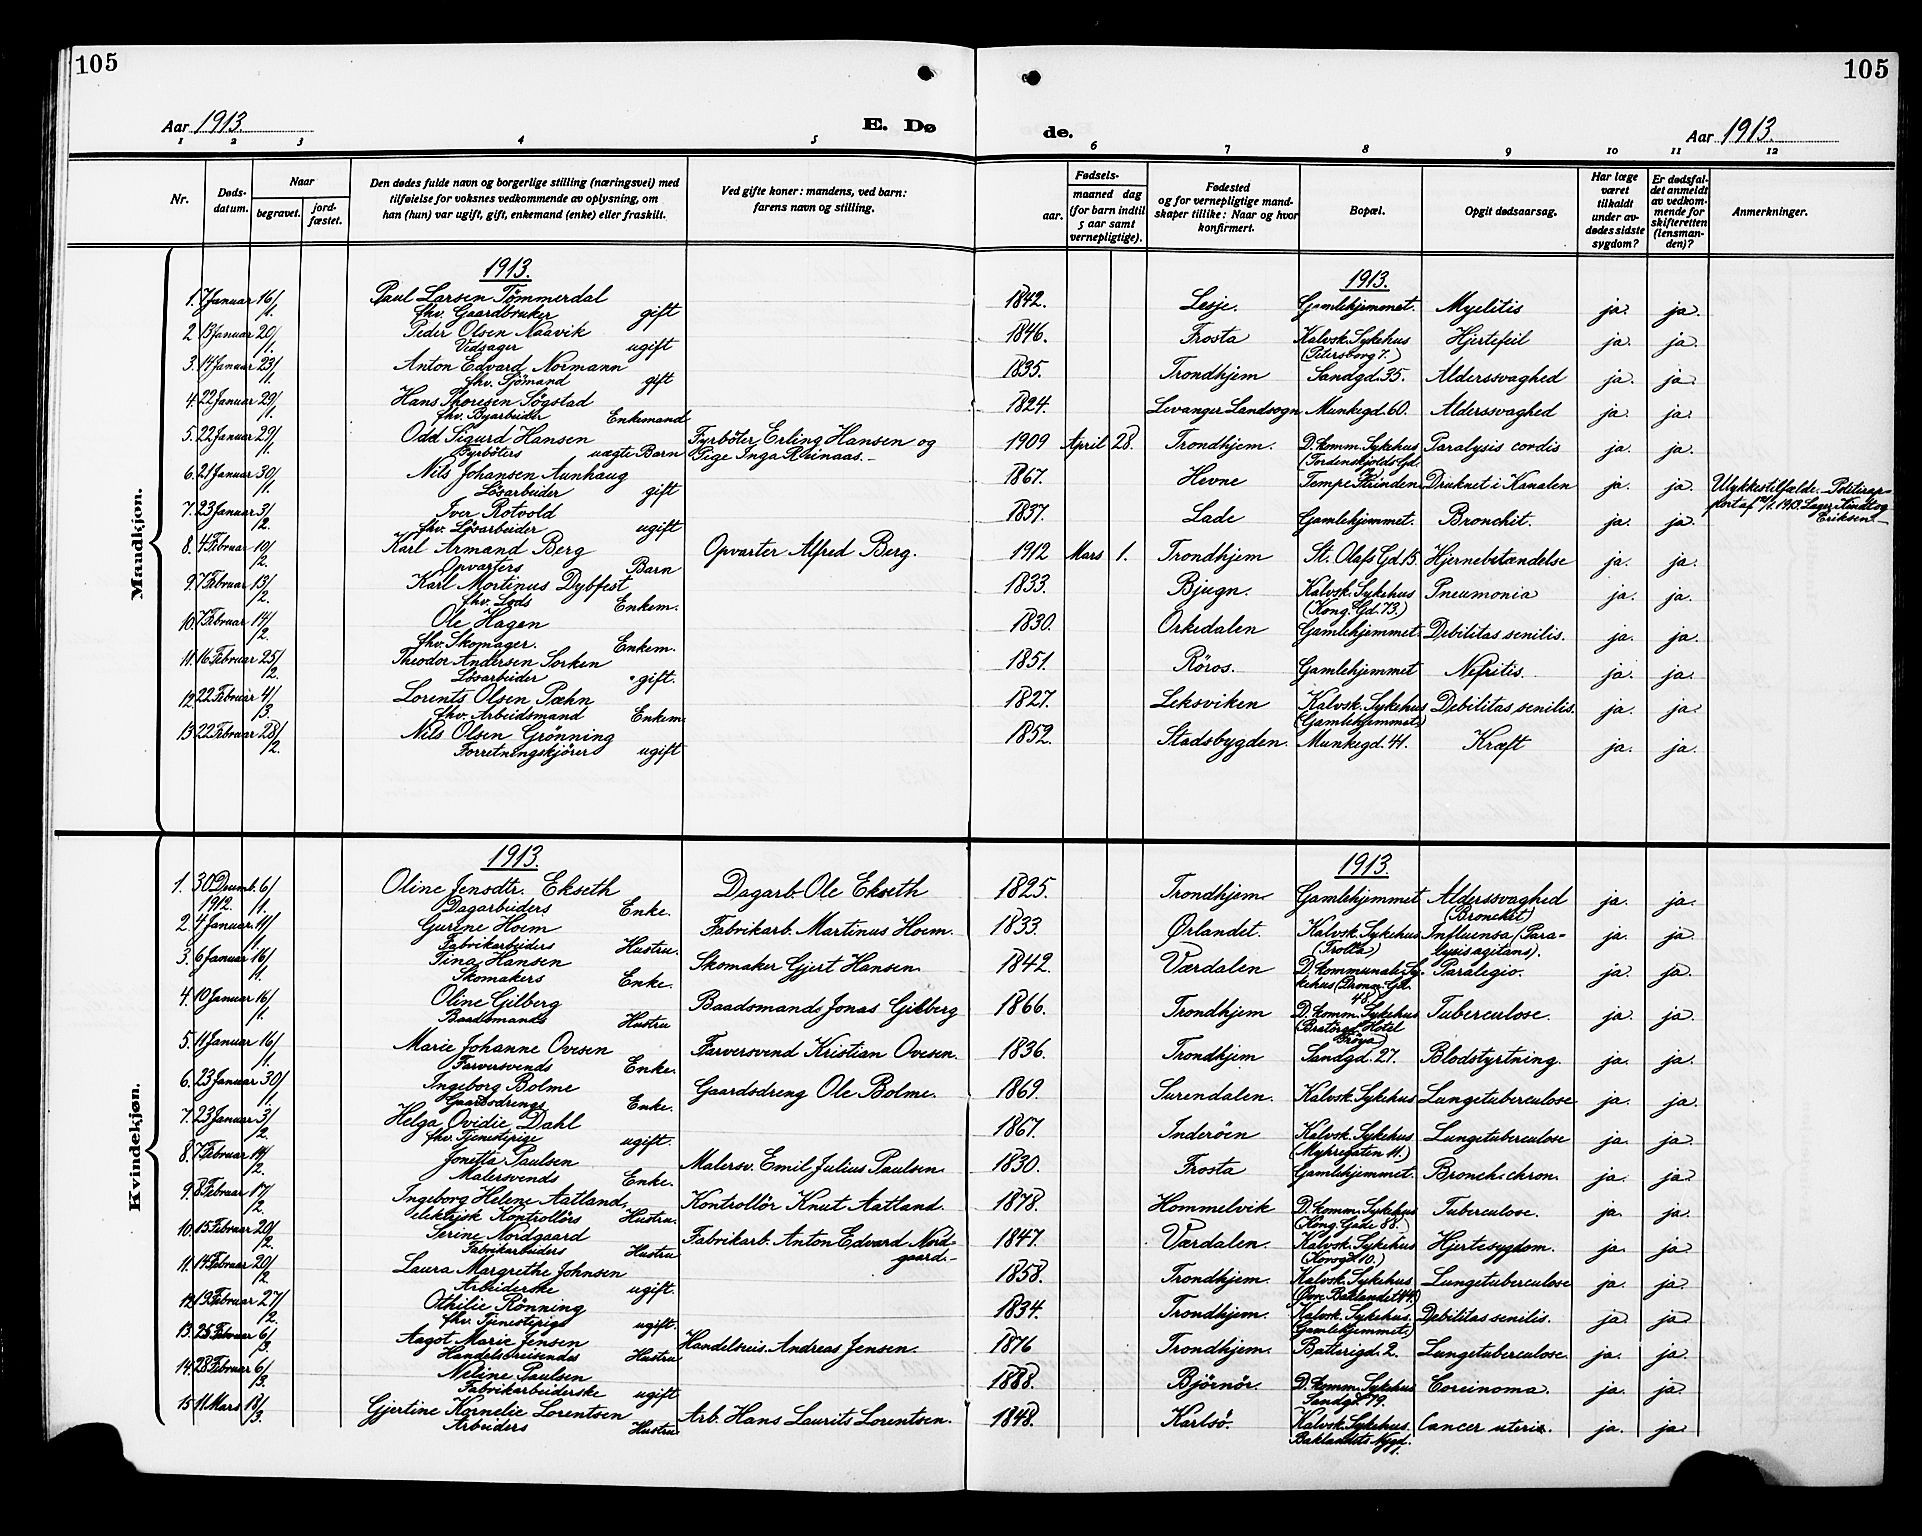 105
105
Aar 1913.
E. Dø
de.
Aar 1913.
1 2 3 4 5 6 7 8 9 10 11 12
Nr.
Døds-
datum.
Naar
begravet.
jord-
fæstet.
Den dødes fulde navn og borgerlige stilling (næringsvei) med
tilføielse for voksnes vedkommende av oplysning, om
han (hun) var ugift, gift, enkemand (enke) eller fraskilt.
Ved gifte koner: mandens, ved barn:
farens navn og stilling.
Fødsels-
aar.
maaned dag
(for barn indtil
5 aar samt
vernepligtige).
Fødested
og for vernepligtige mand-
skaper tillike: Naar og hvor
konfirmert.
Bopæl.
Opgit dødsaarsag.
Har læge
været
tilkaldt
under av-
dødes sidste
sygdom?
Er dødsfal-
det anmeldt
av vedkom-
mende for
skifteretten
(lensman-
den)?
Anmerkninger.
Mandkjøn.
1913. 1913.
1. 7 Januar 16/1. Paul Larsen Tömmerdal 1842. Lesje. Gamlehjemmet. Myelitis ja. ja.
fhv. Gaardbruker gift
2 13 Januar 20/1. Peder Olsen Naavik 1846. Frosta Kalvsk. Sykehus Hjertefeil ja. ja.
Vedsager ugift (Petersborg 7.)
3. 14 Januar 23/1. Anton Edvard Normann 1835. Trondhjem Sandgd. 35. Alderssvaghed ja. ja.
fhv. Sjömand gift
4. 22 Januar 29/1. Hans Thoresen Sögstad 1824. Levanger Landsogn Munkegd. 60. Alderssvaghed ja. ja.
fhv. Byarbeider Enkemand
5. 22 Januar 29/1. Odd Sigurd Hansen Fyrböter Erling Hansen og 1909 April 28. Trondhjem. D. komm. Sykehus Paralysis cordis ja. ja.
Fyrböters uægte Barn Pige Inga Reinaas. (Tordenskjolds Gd.
6. 21 Januar 30/1. Nils Johansen Aunhaug 1867. Hevne Tempe Strinden Druknet i Kanalen ja. ja. Ulykkestilfælde. Politirap-
Lösarbeider gift
7. 23 Januar 3/2. Iver Rotvold 1837. Lade Gamlehjemmet. Bronchit. ja. ja.
fhv. Lösarbeider ugift Eriksen
8. 4 Februar 10/2. Karl Armand Berg Opvarter Alfred Berg. 1912 Mars 1. Trondhjem St. Olafs Gd. 15. Hjernebetændelse ja. ja.
Opvarters Barn
9. 7 Februar 13/2. Karl Martinus Dybfest 1833. Bjugn. Kalvsk. Sykehus Pneumonia ja. ja.
fhv. Lods Enkem. (Kong. Gd. 73.)
10. 7 Februar 14/2. Ole Hagen 1830. Orkedalen Gamlehjemmet. Debilitas senilis. ja. ja.
fhv. Skomager. Enkem.
11. 16 Februar 25/2. Theodor Andersen Sorken 1851. Röros. Gamlehjemmet Nefritis. ja. ja.
Lösarbeider gift.
12. 22 Februar 4/3. Lorents Olsen Pæhn 1827. Leksviken Kalvsk. Sykehus Debilitas senilis. ja. ja.
fhv. Arbeidsmand Enkem. (Gamlehjemmet)
13. 22 Februar 28/2. Nils Olsen Grönning 1852. Stadsbygden. Munkegd. 41. Kræft ja. ja.
Forretningskjörer ugift
Kvindekjøn.
1913. 1913.
1. 30 Decemb. 6/1. Oline Jensdtr. Ekseth Dagarb. Ole Ekseth 1825. Trondhjem. Gamlehjemmet Alderssvaghed ja. ja.
1912. Dagarbeiders Enke. (Bronchit)
2. 4 Januar 11/1. Gurine Hoem Fabrikarb. Martinus Hoem. 1833. Ørlandet. Kalvsk. Sykehus Influensa (Para- ja. ja
Fabrikarbeiders Hustru. (Trolla) lysis agitans).
3. 6 Januar 16/1. Tina Hansen Skomaker Gjert Hansen. 1842. Værdalen D. kommunale Sy- Paralegio. ja. ja
Skomakers Enke. kehus (Dronn. Gd. 48)
4. 10 Januar 16/1. Oline Gilberg Baadsmands Jonas Gilberg 1866. Trondhjem D. komm. Sykehus Tuberculose. ja. ja.
Baadsmands Hustru (Bratörgd. Hotel Fröya)
5. 11 Januar 16/1. Marie Johanne Ovesen Farversvend Kristian Ovesen. 1836. Trondhjem Sandgd. 27. Blodstyrtning. ja. ja.
Farversvends Enke.
6. 23 Januar 30/1. Ingeborg Bolme Gaardsdreng Ole Bolme. 1869. Surendalen. Kalvsk. Sykehus Lungetuberculose ja. ja.
Gaardsdrengs Enke.
7. 23 Januar 3/2. Helga Ovidie Dahl 1867. Inderöen Kalvsk. Sykehus Lungetuberculose ja. ja.
fhv. Tjenestepige ugift. (Myhregaten 11.)
8. 7 Februar 14/2. Jonetta Paulsen Malersv. Emil Julius Paulsen. 1830. Frosta Gamlehjemmet. Bronch. chron. ja. ja.
Malersvends Enke.
9. 8 Februar 17/2. Ingeborg Helene Aatland, Kontrollör Knut Aatland. 1878. Hommelvik D. komm. Sykehus Tuberculose. ja. ja.
elektrisk Kontrollörs Hustru. (Kong. Gade 88.)
10. 15 Februar 20/2. Serine Nordgaard Fabrikarb. Anton Edvard Nord- 1847. Værdalen. Kalvsk. Sykehus Hjertesygdom. ja. ja
Fabrikarbeiders Hustru gaard.
11. 14 Februar 20/2. Laura Margrethe Johnsen 1858. Trondhjem. Kalvsk. Sykehus Lungetuberculose ja. ja.
Arbeiderske ugift.
12. 19 Februar 27/2. Othilie Rönning 1834. Trondhjem. Kalvsk. Sykehus Debilitas senilis. ja ja.
fhv. Tjenestepige ugift. Gamlehjemmet)
13. 25 Februar 6/3. Aagot Marie Jensen Handelsreis. Andreas Jensen. 1876 Trondhjem. Batterigd. 2. Lungetuberculose. ja. ja.
Handelsreisendes Hustru
14. 28 Februar 6/3. Neline Paulsen 1888. Björnör. D. komm. Sykehus Corcinoma. ja. ja.
Fabrikarbeiderske ugift Sandgd. 79.
15 11 Mars 18/3. Gjertine Kornelie Lorentsen Arb. Hans Laurits Lorentsen. 1848. Karlsö. Kalvsk. Sykehus. Cancer uteri. ja. ja.
Arbeiders Hustru Baklandets Nygd.